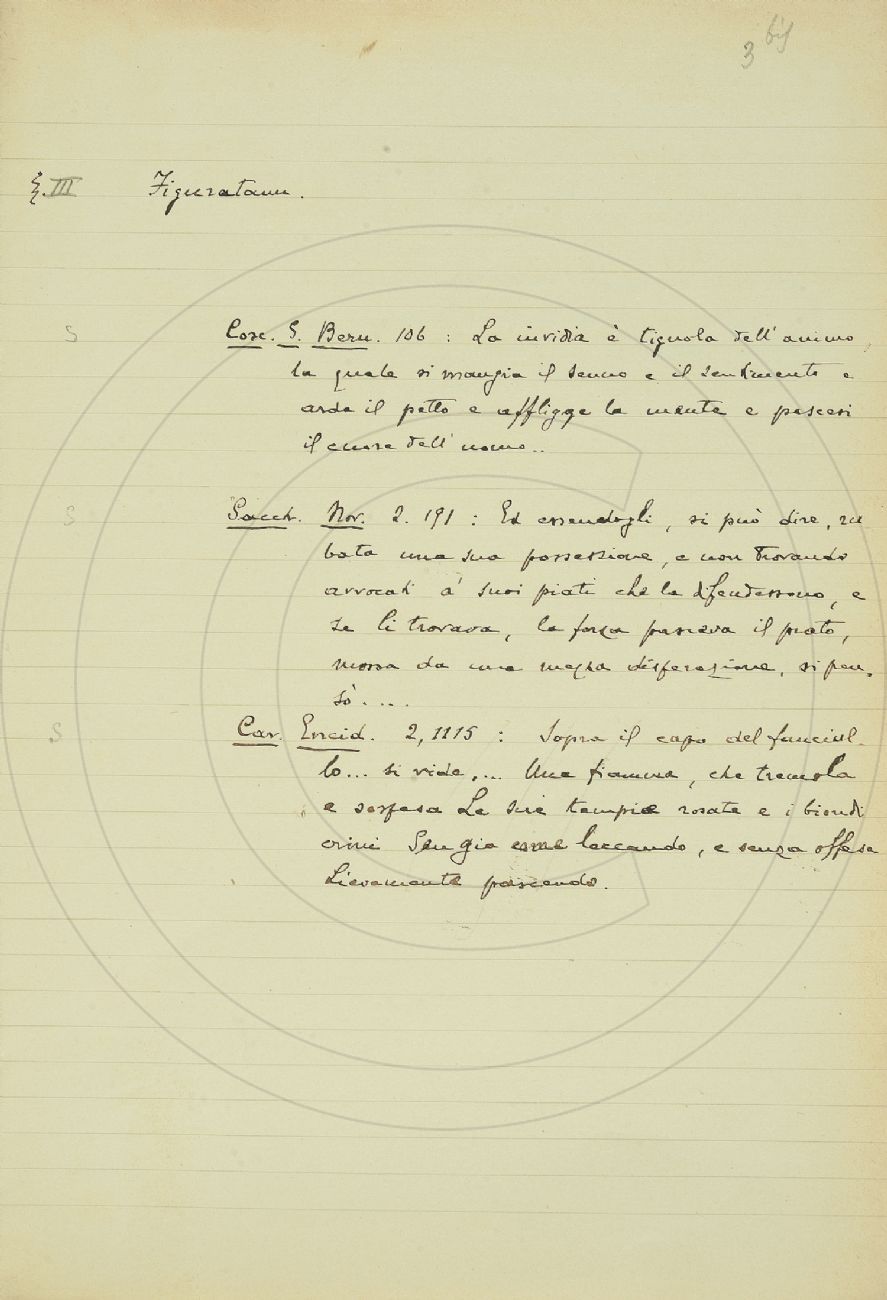 3 bis
§. III Figuratam.
S Cosc. S. Bern. 106 : La invidia è tignola dell' animo,
la quale si mangia il senno e il sentimento e
arde il petto e affligge la mente e pascesi
il cuore dell' uomo..
S Sacch. Nov. 2. 191 : Ed essendogli, si può dire, ru
bata una sua possessione, e non trovando
avvocati a' suoi piati che la difendessono, e
se li trovava, la forza pasceva il prato,
mosso da una mezza disperazione, si pen-
sò....
S Car. Eneid. 2, 1115 : Sopra il capo del fanciul-
lo... si vide,... Una fiamma, che tremola
e sospesa Le sue tempie rosate e i biondi
crini Sen gia come leccando, e senza offesa
Lievemente pascendo.